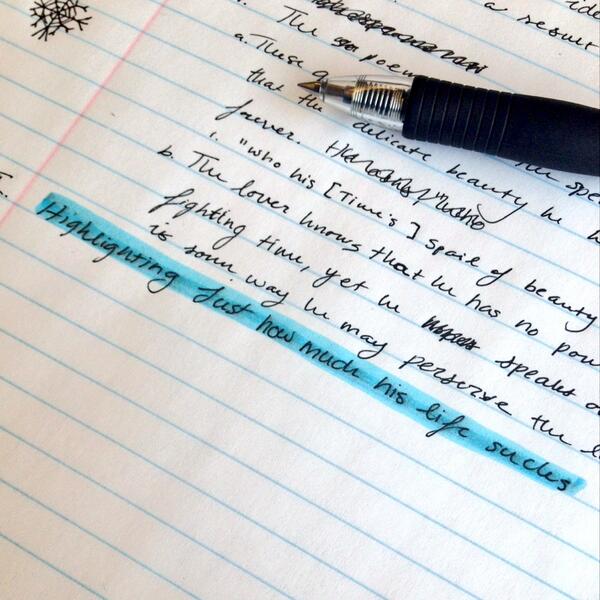 a result
The poem
a. These
that the delicate beauty he h
the spe
forever.
i. "who his [Time's] spoil of beauty
b. The lover knows that he has no pow
fighting time, yet he speaks o
is some way he may perserve the l
Highlighting Just how much his life sucks